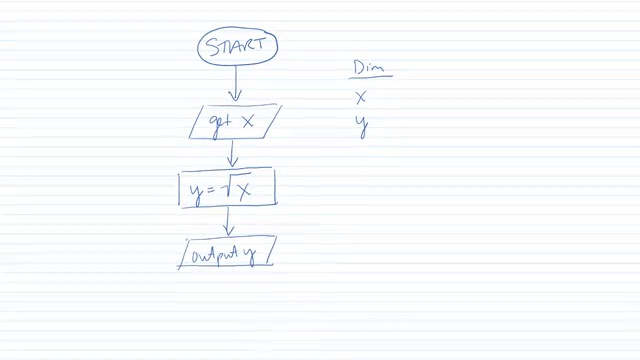 START
get x
y = √x
output y
Dim
x
y